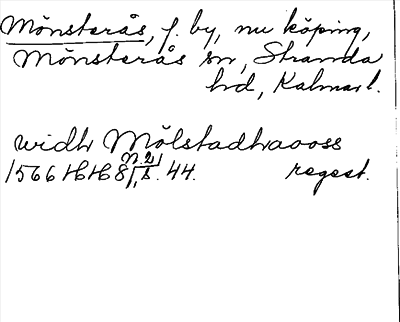 Mönsterås, f. by, nu köping,
Mönsterås sn, Stranda
hd, Kalmar l.
widh Mölstadhaooss
1566 HH 8 44. regest.